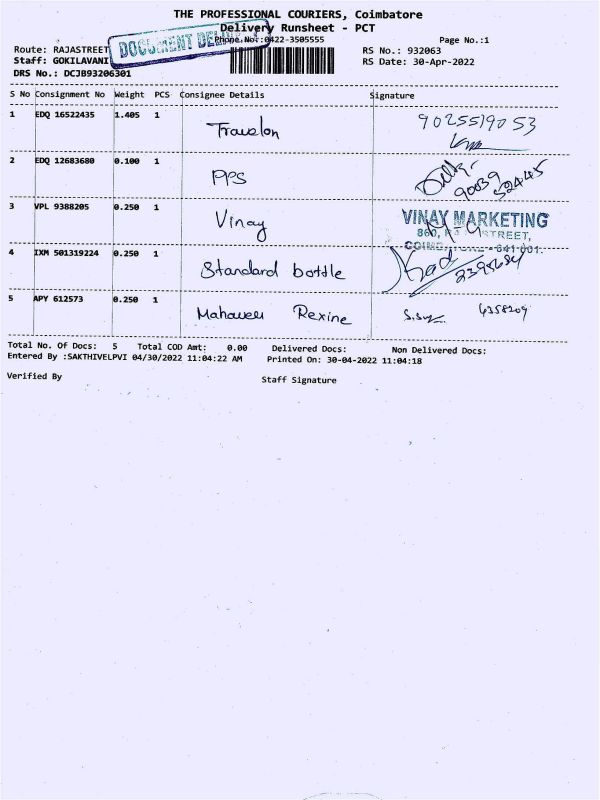 THE PROFESSIONAL COURIERS, Coimbatore
Delivery Runsheet - PCT
Phone No.:0422-3505555 Page No.:1
Route: RAJASTREET RS No.: 932063
Staff: GOKILAVANI DOCUMENT RS Date: 30-Apr-2022
DRS No.: DCJB93206301
S No Consignment No Weight PCS Consignee Details Signature
1 EDQ 16522435 1.405 1 Travelon 9025519053
2 EDQ 12683680 0.100 1 PPS 90039 52445
3 VPL 9388205 0.250 1 Vinay VINAY MARKETING
860, STREET,
- 641 001.
4 IXM 501319224 0.250 1 Standard bottle
5 APY 612573 0.250 1 Mahaveer Rexine 4358209
Total No. Of Docs: 5 Total COD Amt: 0.00 Delivered Docs: Non Delivered Docs:
Entered By :SAKTHIVELPVI 04/30/2022 11:04:22 AM Printed On: 30-04-2022 11:04:18
Verified By Staff Signature